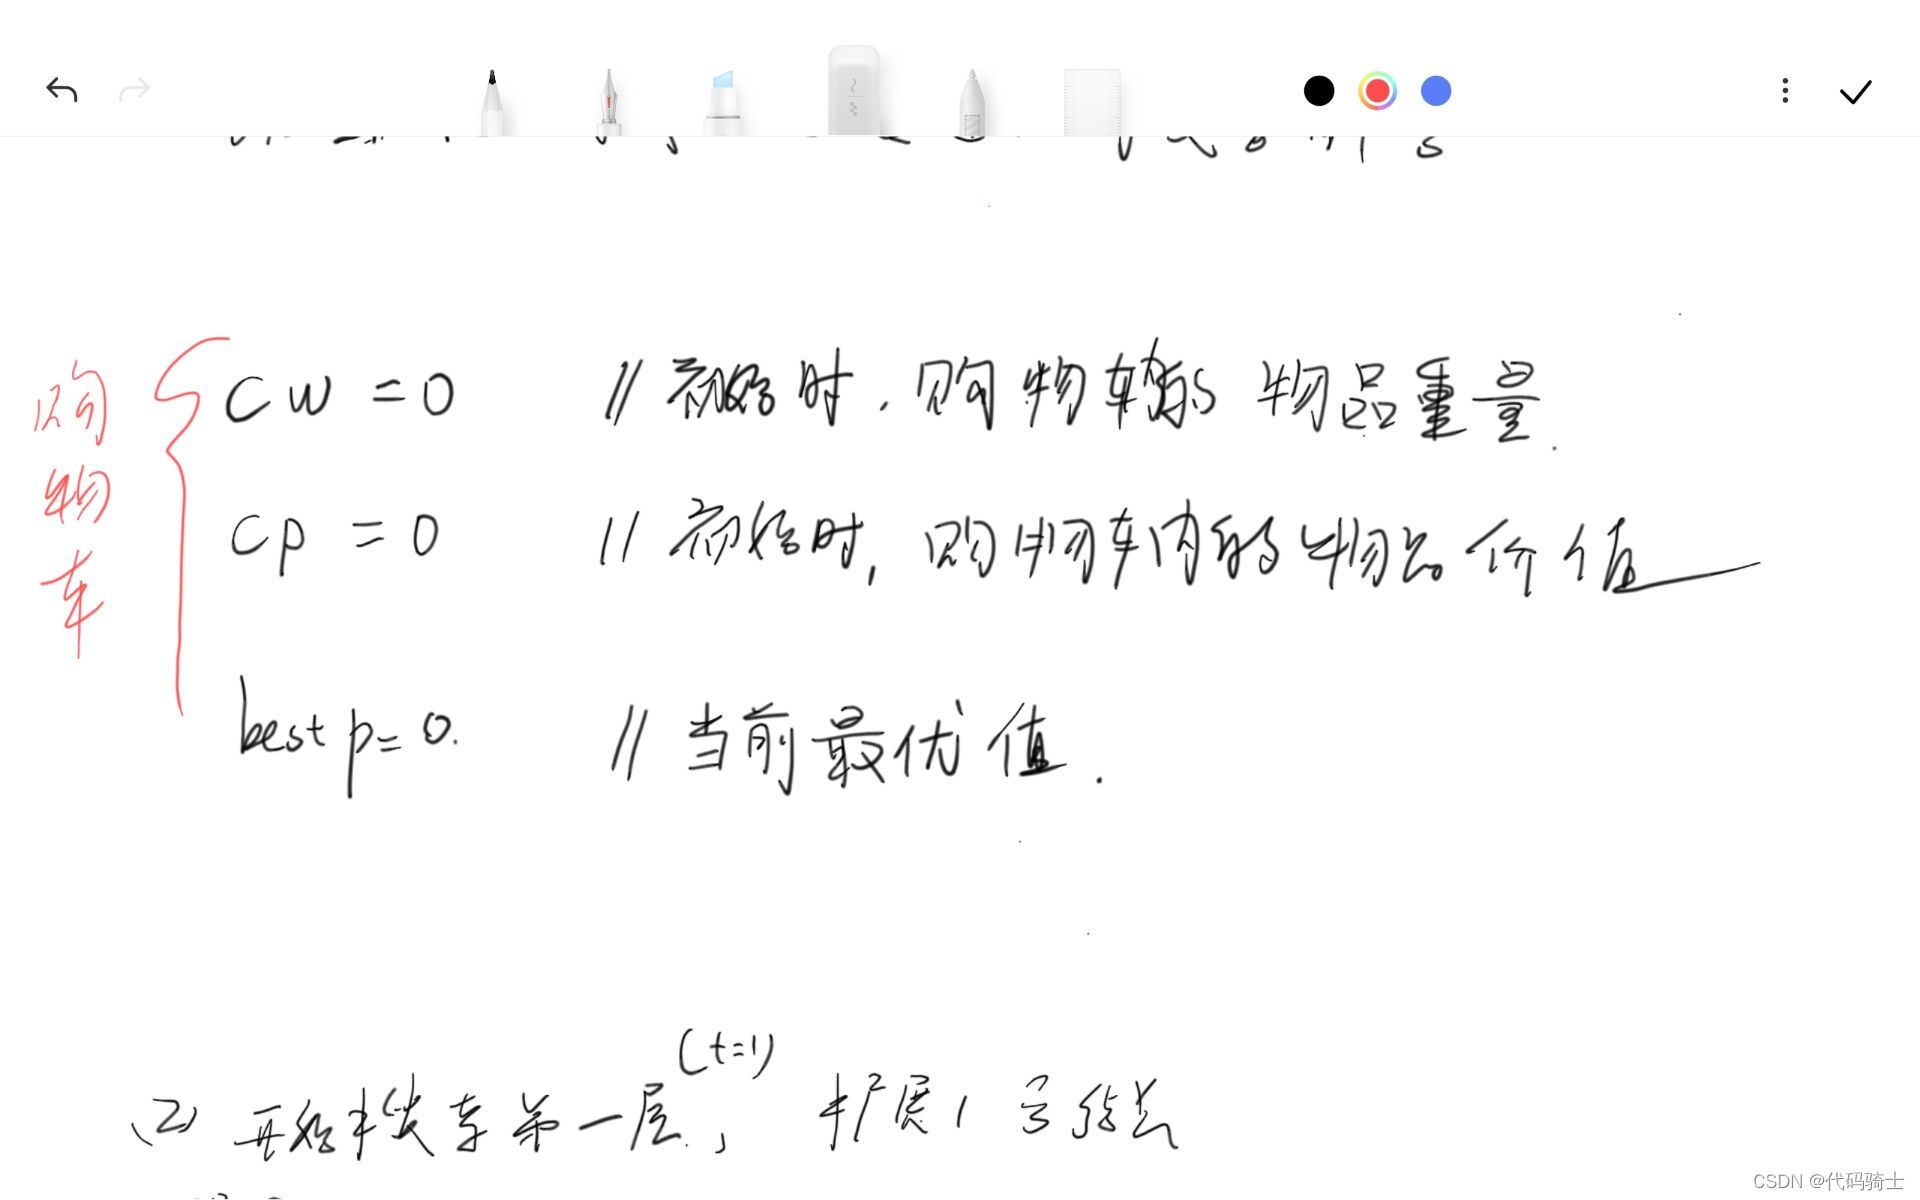 购物车
cw = 0 // 初始时，购物车的物品重量.
cp = 0 // 初始时，购物车内的物品价值
bestp = 0. // 当前最优值.
(t=1)
(2) 开始搜索第一层， 扩展1号结点
CSDN @代码骑士